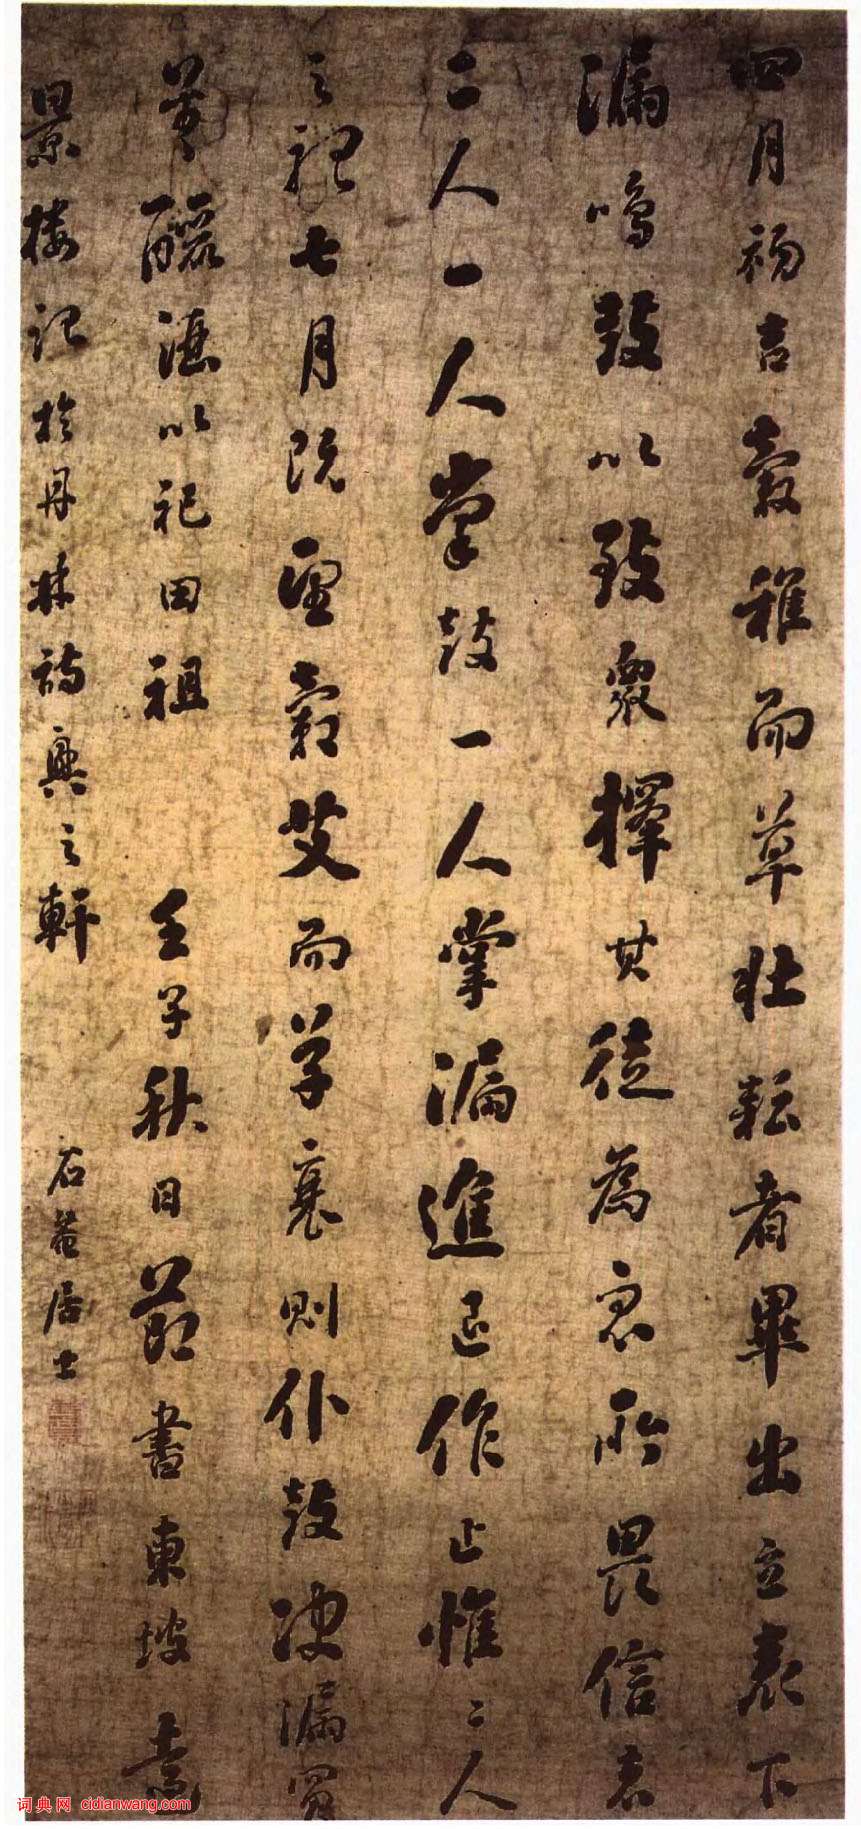 四月初吉穀稚而草壯耘者畢出立表下
漏鳴鼓以致眾擇其徒為眾所畏信者
二人一人掌鼓一人掌漏進退作止惟二人
之聽七月既望穀艾而草衰則仆鼓決漏買
羊釃酒以祀田祖 壬子秋日節書東坡遠
景樓記於丹林詩興之軒 石菴居士
词典网 cidianwang.com